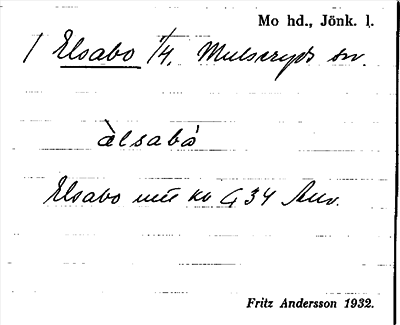 Mo hd., Jönk. l.
/ Elsabo 1/4. Mulseryds sn.
àlsabò
Elsabo ko G 34 Anv.
Fritz Andersson 1932.